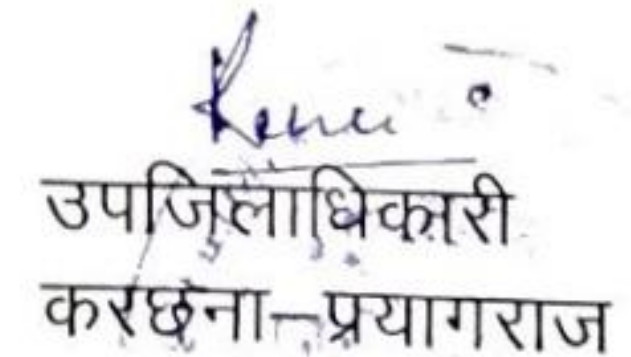 उपजिलाधिकारी
करछना–प्रयागराज